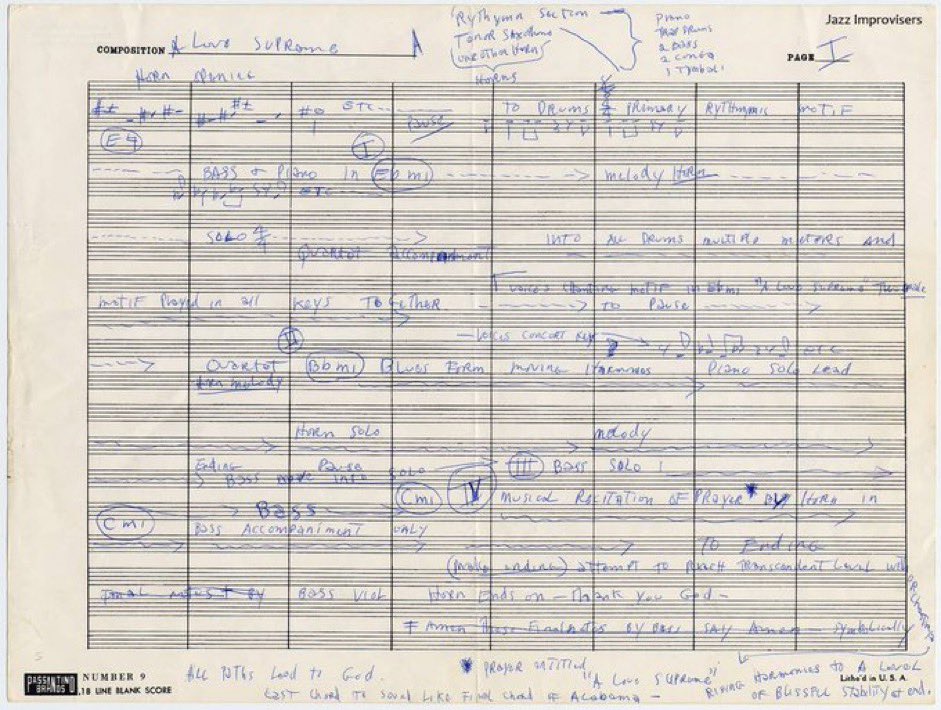 Jazz Improvisers
COMPOSITION A Love Supreme
"Rythymn Section
Tenor Saxophone
one other Horns
HORNS
Piano
Trap DRUMS
2 BASS
2 CONGA
1 Tymbali
PAGE I
Horn opening
ETC Pause TO DRUMS PRIMARY RYTHYMIC MOTIF
E
I
BASS + Piano in Ebmi melody Horn
ETC
SOLO Quartet accompaniment INTO all DRUMS multiple meters and
voices chanting motif in Ebmi "A Love Supreme"
motif Played in all keys TOGETHER TO Pause
VOICES CONCERT KEY
ETC
II
Quartet Bbmi Blues Form moving Harmonies Piano Solo Lead
Horn melody
Horn Solo melody
Ending Pause III Bass Solo
Bass move into solo
Cmi IV Musical Recitation OF PRAYER * BY HORN in
Cmi Bass
Bass Accompaniment only
TO Ending
(make ending) attempt to reach transcendent Level with
ORCHESTRA
Final notes by Bass Viol Horn Ends on — Thank you God —
Amen These Final notes BY BASS SAY Amen — Symbolically
PASSANTINO BRANDS NUMBER 9
18 LINE BLANK SCORE
ALL PATHS Lead to God.
* PRAYER entitled "A Love Supreme"
Last chord to sound like Final chord of Alabama —
RISING Harmonies to A Level
OF Blissful Stability at end.
Litho'd in U. S. A.